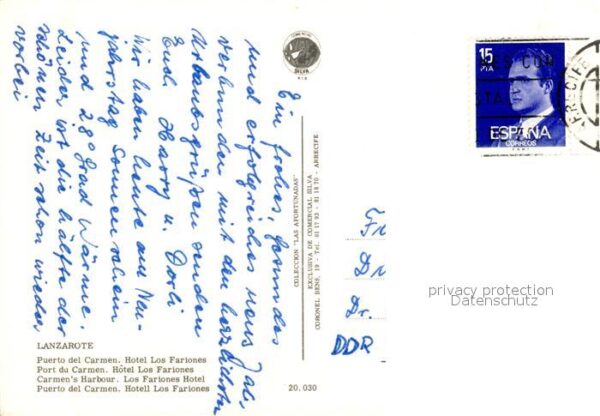 Ein frohes, gesundes
und erfolgreiches neues Jahr
verbunden mit den herzlichsten
Urlaubsgrüßen senden
Euch Harry u. Dorli
Wir haben heute am Neu-
jahrstag Sonnenschein
und 28° Grad Wärme.
Leider ist die hälfte der
schönen Zeit schon wieder
vorbei
SILVA
COLECCION "LAS AFORTUNADAS"
EXCLUSIVA DE COMERCIAL SILVA
CORONEL BENS, 19 - Tel. 81 17 93 - 81 18 70 - ARRECIFE
15
PTA
ESPAÑA
CORREOS
ARRECIFE
Fr
Dr.
DDR
privacy protection
Datenschutz
LANZAROTE
Puerto del Carmen. Hotel Los Fariones
Port du Carmen. Hôtel Los Fariones
Carmen's Harbour. Los Fariones Hotel
Puerto del Carmen. Hotell Los Fariones
20.030